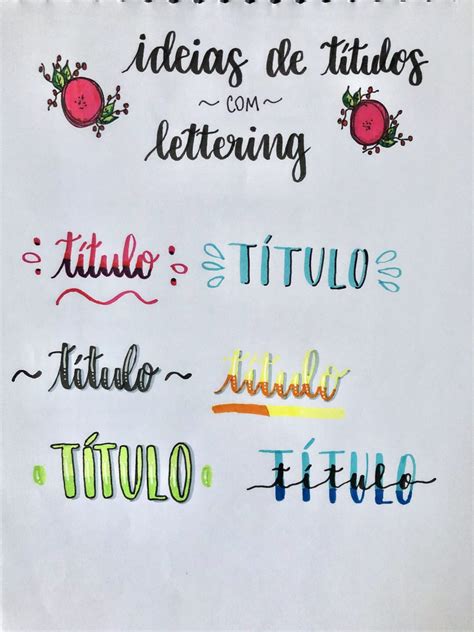 ideias de títulos
~ COM ~
lettering
título TÍTULO
~ título ~ título
TÍTULO TÍTULO
título